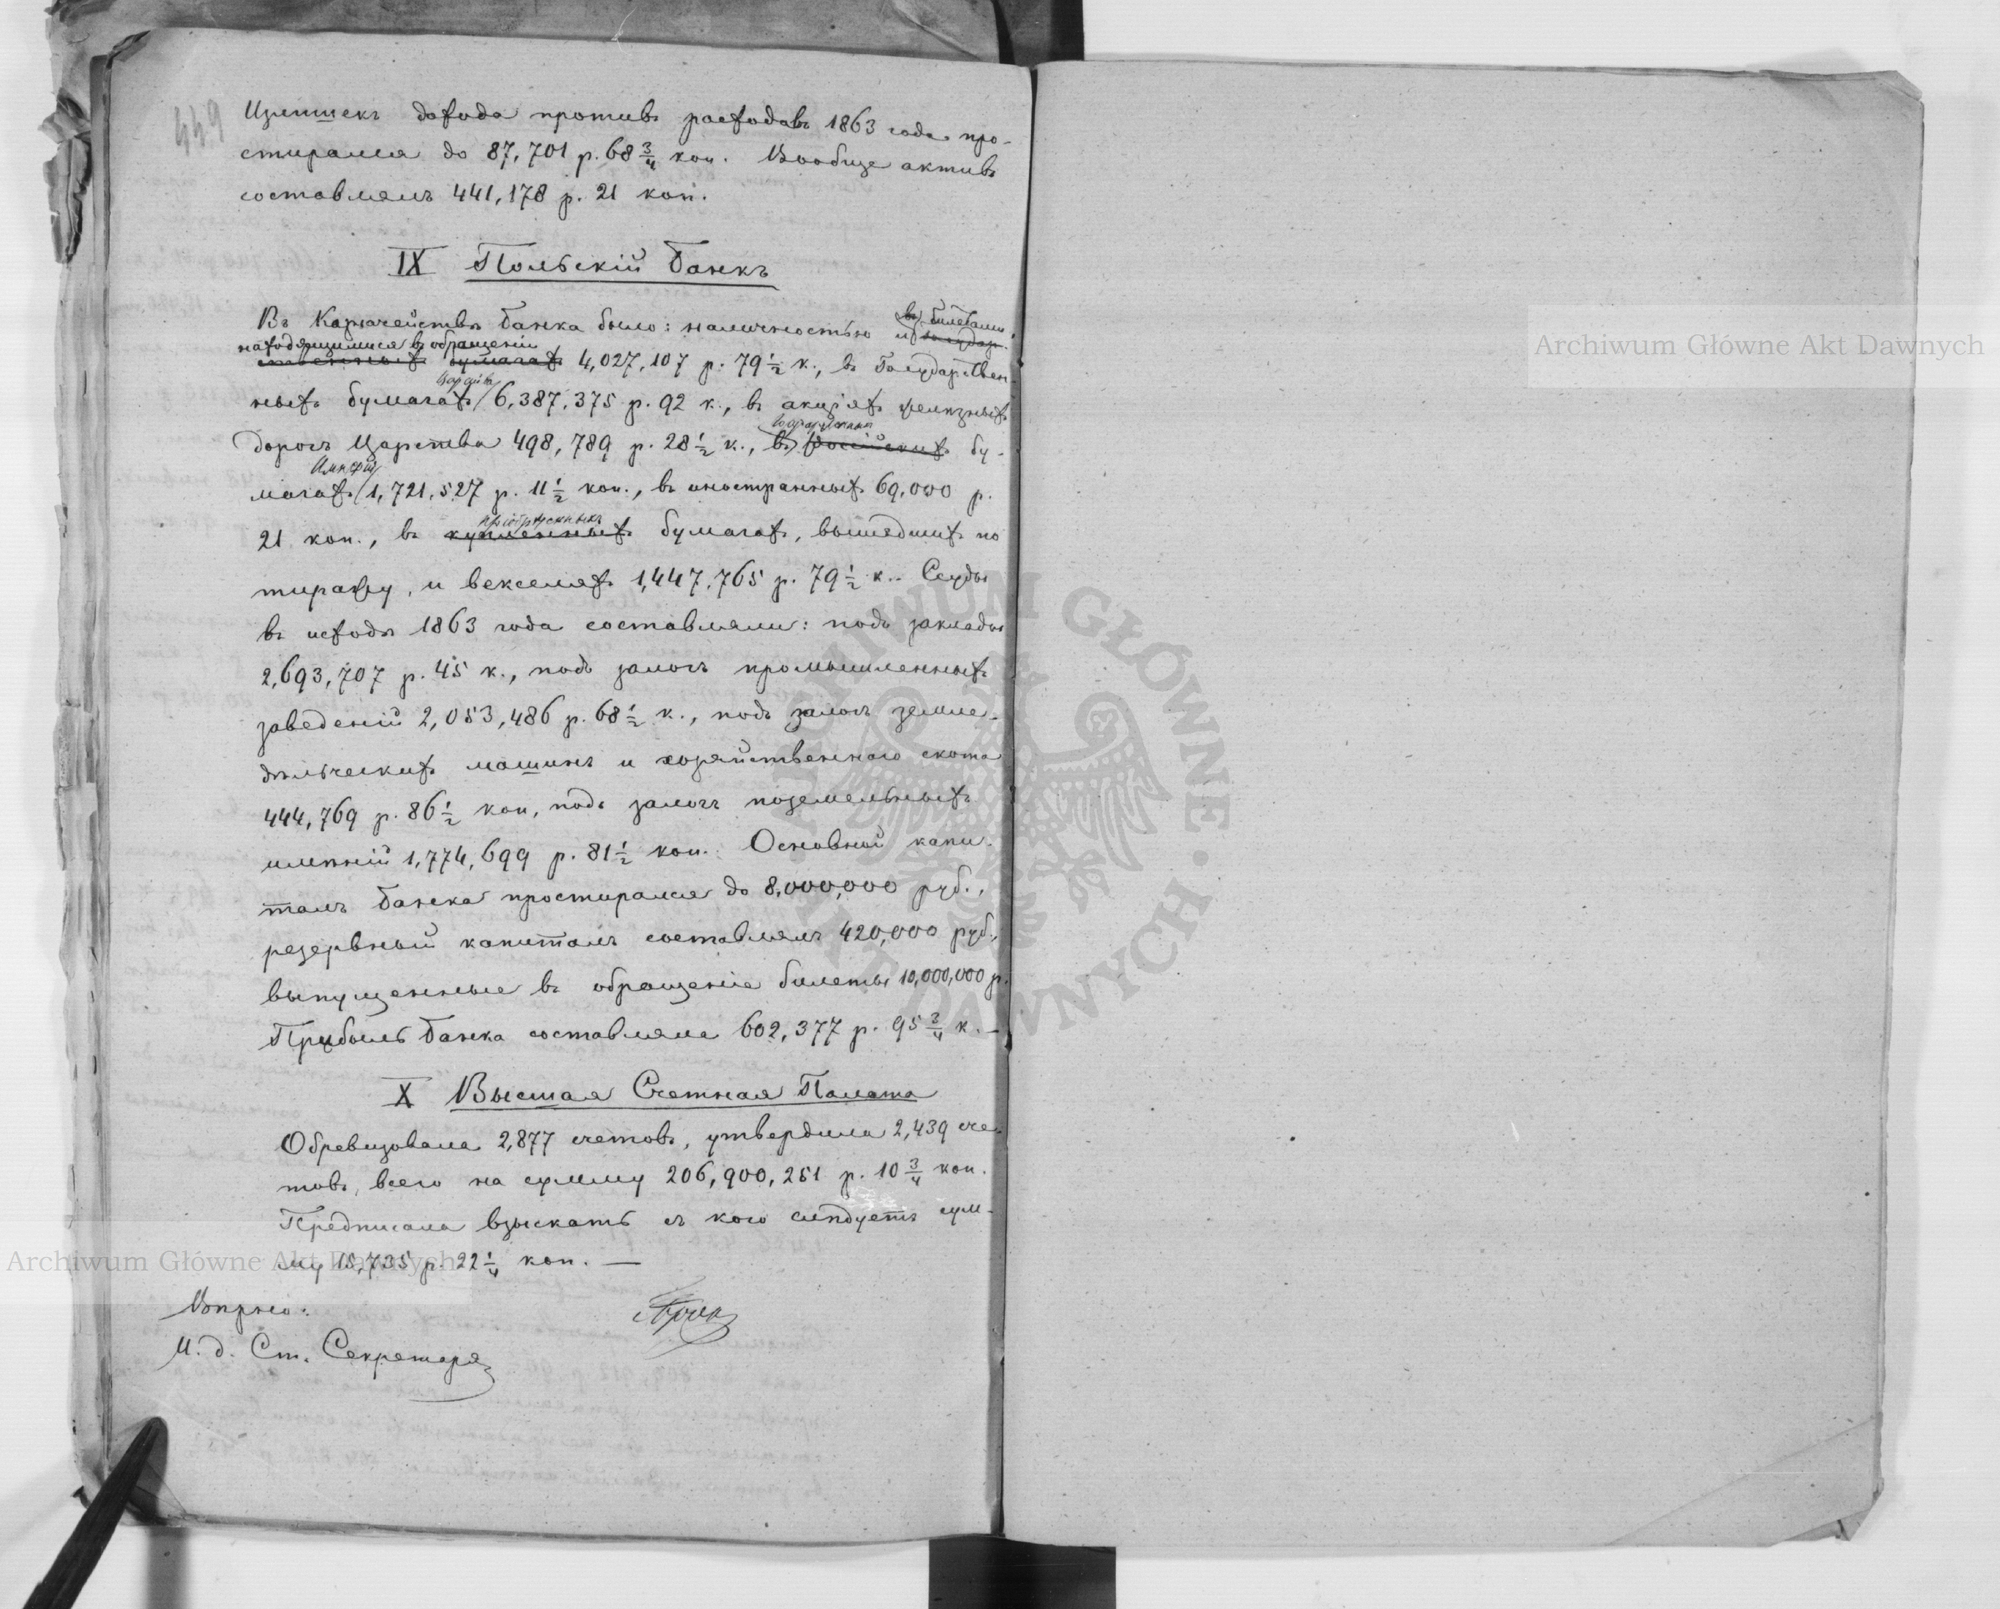 449
Излишекъ дохода противъ расходовъ 1863 года про-
стирался до 87,701 р. 68 3/4 коп. Вообще активъ
составлялъ 441,178 р. 21 коп.
IX Польскій Банкъ
Въ Казначействѣ Банка было: наличностью и билетами
находящимися въ обращеніи
4,027,107 р. 79 1/2 к., въ Государствен-
ныхъ бумагахъ 6,387,375 р. 92 к., въ акціяхъ желѣзныхъ
дорогъ Царства 498,789 р. 28 1/2 к., въ Россійскихъ бу-
магахъ Имперіи 1,721,527 р. 11 1/2 коп., въ иностранныхъ 69,000 р.
пріобрѣтенныхъ
21 коп., въ купленныхъ бумагахъ, вышедшихъ по
тиражу, и векселяхъ 1,447,765 р. 79 1/2 к. Ссуды
въ исходѣ 1863 года составляли: подъ заклады
2,693,707 р. 45 к., подъ залогъ промышленныхъ
заведеній 2,053,486 р. 68 1/2 к., подъ залогъ земле-
дѣльческихъ машинъ и хозяйственнаго скота
444,769 р. 86 1/2 коп., подъ залогъ поземельныхъ
имѣній 1,774,699 р. 81 1/2 коп. Основной капи-
талъ Банка простирался до 8,000,000 руб.,
резервный капиталъ составлялъ 420,000 руб.,
выпущенные въ обращеніе билеты 10,000,000 р.
Прибыль Банка составляла 602,377 р. 95 3/4 к. —
X Высшая Счетная Палата
Обревизовала 2,877 счетовъ, утвердила 2,439 сче-
товъ, всего на сумму 206,900,251 р. 10 3/4 коп.
Предписала взыскать съ кого слѣдуетъ сум-
му 15,735 р. 22 1/4 коп. —
Вѣрно:
И. д. Ст. Секретаря
Archiwum Główne Akt Dawnych
Archiwum Główne Akt Dawnych
ARCHIWUM GŁÓWNE AKT DAWNYCH